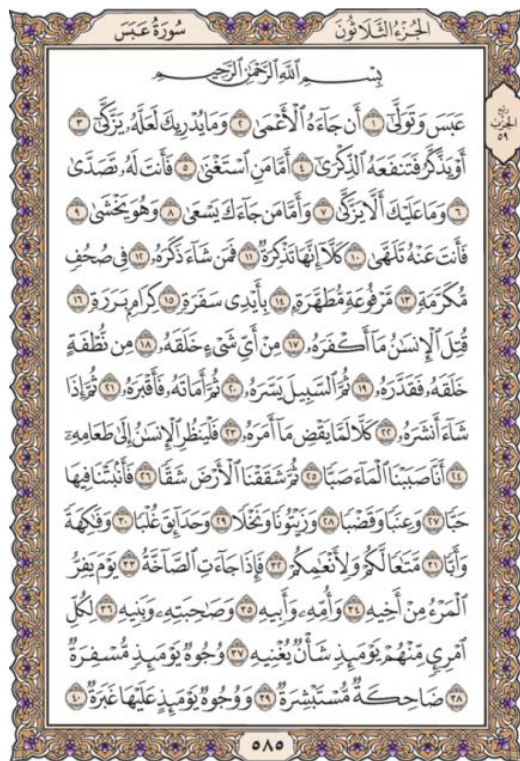 الجُزْءُ الثَّلَاثُونَ سُورَةُ عَبَسَ
رُبْع الحِزْب ٥٩
بِسْمِ ٱللَّهِ ٱلرَّحْمَٰنِ ٱلرَّحِيمِ
عَبَسَ وَتَوَلَّىٰٓ ١ أَن جَآءَهُ ٱلْأَعْمَىٰ ٢ وَمَا يُدْرِيكَ لَعَلَّهُۥ يَزَّكَّىٰٓ ٣
أَوْ يَذَّكَّرُ فَتَنفَعَهُ ٱلذِّكْرَىٰٓ ٤ أَمَّا مَنِ ٱسْتَغْنَىٰ ٥ فَأَنتَ لَهُۥ تَصَدَّىٰ
٦ وَمَا عَلَيْكَ أَلَّا يَزَّكَّىٰ ٧ وَأَمَّا مَن جَآءَكَ يَسْعَىٰ ٨ وَهُوَ يَخْشَىٰ ٩
فَأَنتَ عَنْهُ تَلَهَّىٰ ١٠ كَلَّآ إِنَّهَا تَذْكِرَةٌ ١١ فَمَن شَآءَ ذَكَرَهُۥ ١٢ فِى صُحُفٍ
مُّكَرَّمَةٍ ١٣ مَّرْفُوعَةٍ مُّطَهَّرَةٍۭ ١٤ بِأَيْدِى سَفَرَةٍ ١٥ كِرَامٍۭ بَرَرَةٍ ١٦
قُتِلَ ٱلْإِنسَٰنُ مَآ أَكْفَرَهُۥ ١٧ مِنْ أَىِّ شَىْءٍ خَلَقَهُۥ ١٨ مِن نُّطْفَةٍ
خَلَقَهُۥ فَقَدَّرَهُۥ ١٩ ثُمَّ ٱلسَّبِيلَ يَسَّرَهُۥ ٢٠ ثُمَّ أَمَاتَهُۥ فَأَقْبَرَهُۥ ٢١ ثُمَّ إِذَا
شَآءَ أَنشَرَهُۥ ٢٢ كَلَّا لَمَّا يَقْضِ مَآ أَمَرَهُۥ ٢٣ فَلْيَنظُرِ ٱلْإِنسَٰنُ إِلَىٰ طَعَامِهِۦٓ
٢٤ أَنَّا صَبَبْنَا ٱلْمَآءَ صَبًّا ٢٥ ثُمَّ شَقَقْنَا ٱلْأَرْضَ شَقًّا ٢٦ فَأَنۢبَتْنَا فِيهَا
حَبًّا ٢٧ وَعِنَبًا وَقَضْبًا ٢٨ وَزَيْتُونًا وَنَخْلًا ٢٩ وَحَدَآئِقَ غُلْبًا ٣٠ وَفَٰكِهَةً
وَأَبًّا ٣١ مَّتَٰعًا لَّكُمْ وَلِأَنْعَٰمِكُمْ ٣٢ فَإِذَا جَآءَتِ ٱلصَّآخَّةُ ٣٣ يَوْمَ يَفِرُّ
ٱلْمَرْءُ مِنْ أَخِيهِ ٣٤ وَأُمِّهِۦ وَأَبِيهِ ٣٥ وَصَٰحِبَتِهِۦ وَبَنِيهِ ٣٦ لِكُلِّ
ٱمْرِئٍ مِّنْهُمْ يَوْمَئِذٍ شَأْنٌ يُغْنِيهِ ٣٧ وُجُوهٌ يَوْمَئِذٍ مُّسْفِرَةٌ
٣٨ ضَاحِكَةٌ مُّسْتَبْشِرَةٌ ٣٩ وَوُجُوهٌ يَوْمَئِذٍ عَلَيْهَا غَبَرَةٌ ٤٠
٥٨٥